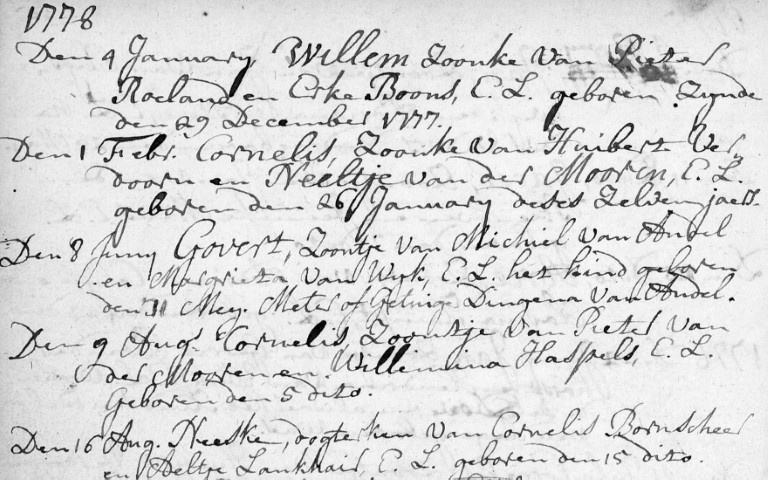 1778
Den 4 January Willem Zoonke van Pieter
Roeland en Erke Boons, E. L. geboren Zynde
den 29 December 1777.
Den 1 Febr. Cornelis, Zoonke van Huibert Ver
doorn en Neeltje van der Mooren, E. L.
geboren den 26 January deses Zelven jaers.
Den 8 Juny Govert, Zoontje van Michiel van Andel
en Margrieta van Wyk, E. L. het kind geboren
den 31 Mey. Meter of Getuige Dingena van Andel.
Den 9 Aug. Cornelis, Zoontje van Pieter van
der Mooren en Willemina Haspels, E. L.
Geboren den 5 dito.
Den 16 Aug. Neeske, dogterken van Cornelis Bornscheer
en Aeltje Lankhair, E. L. geboren den 15 dito.